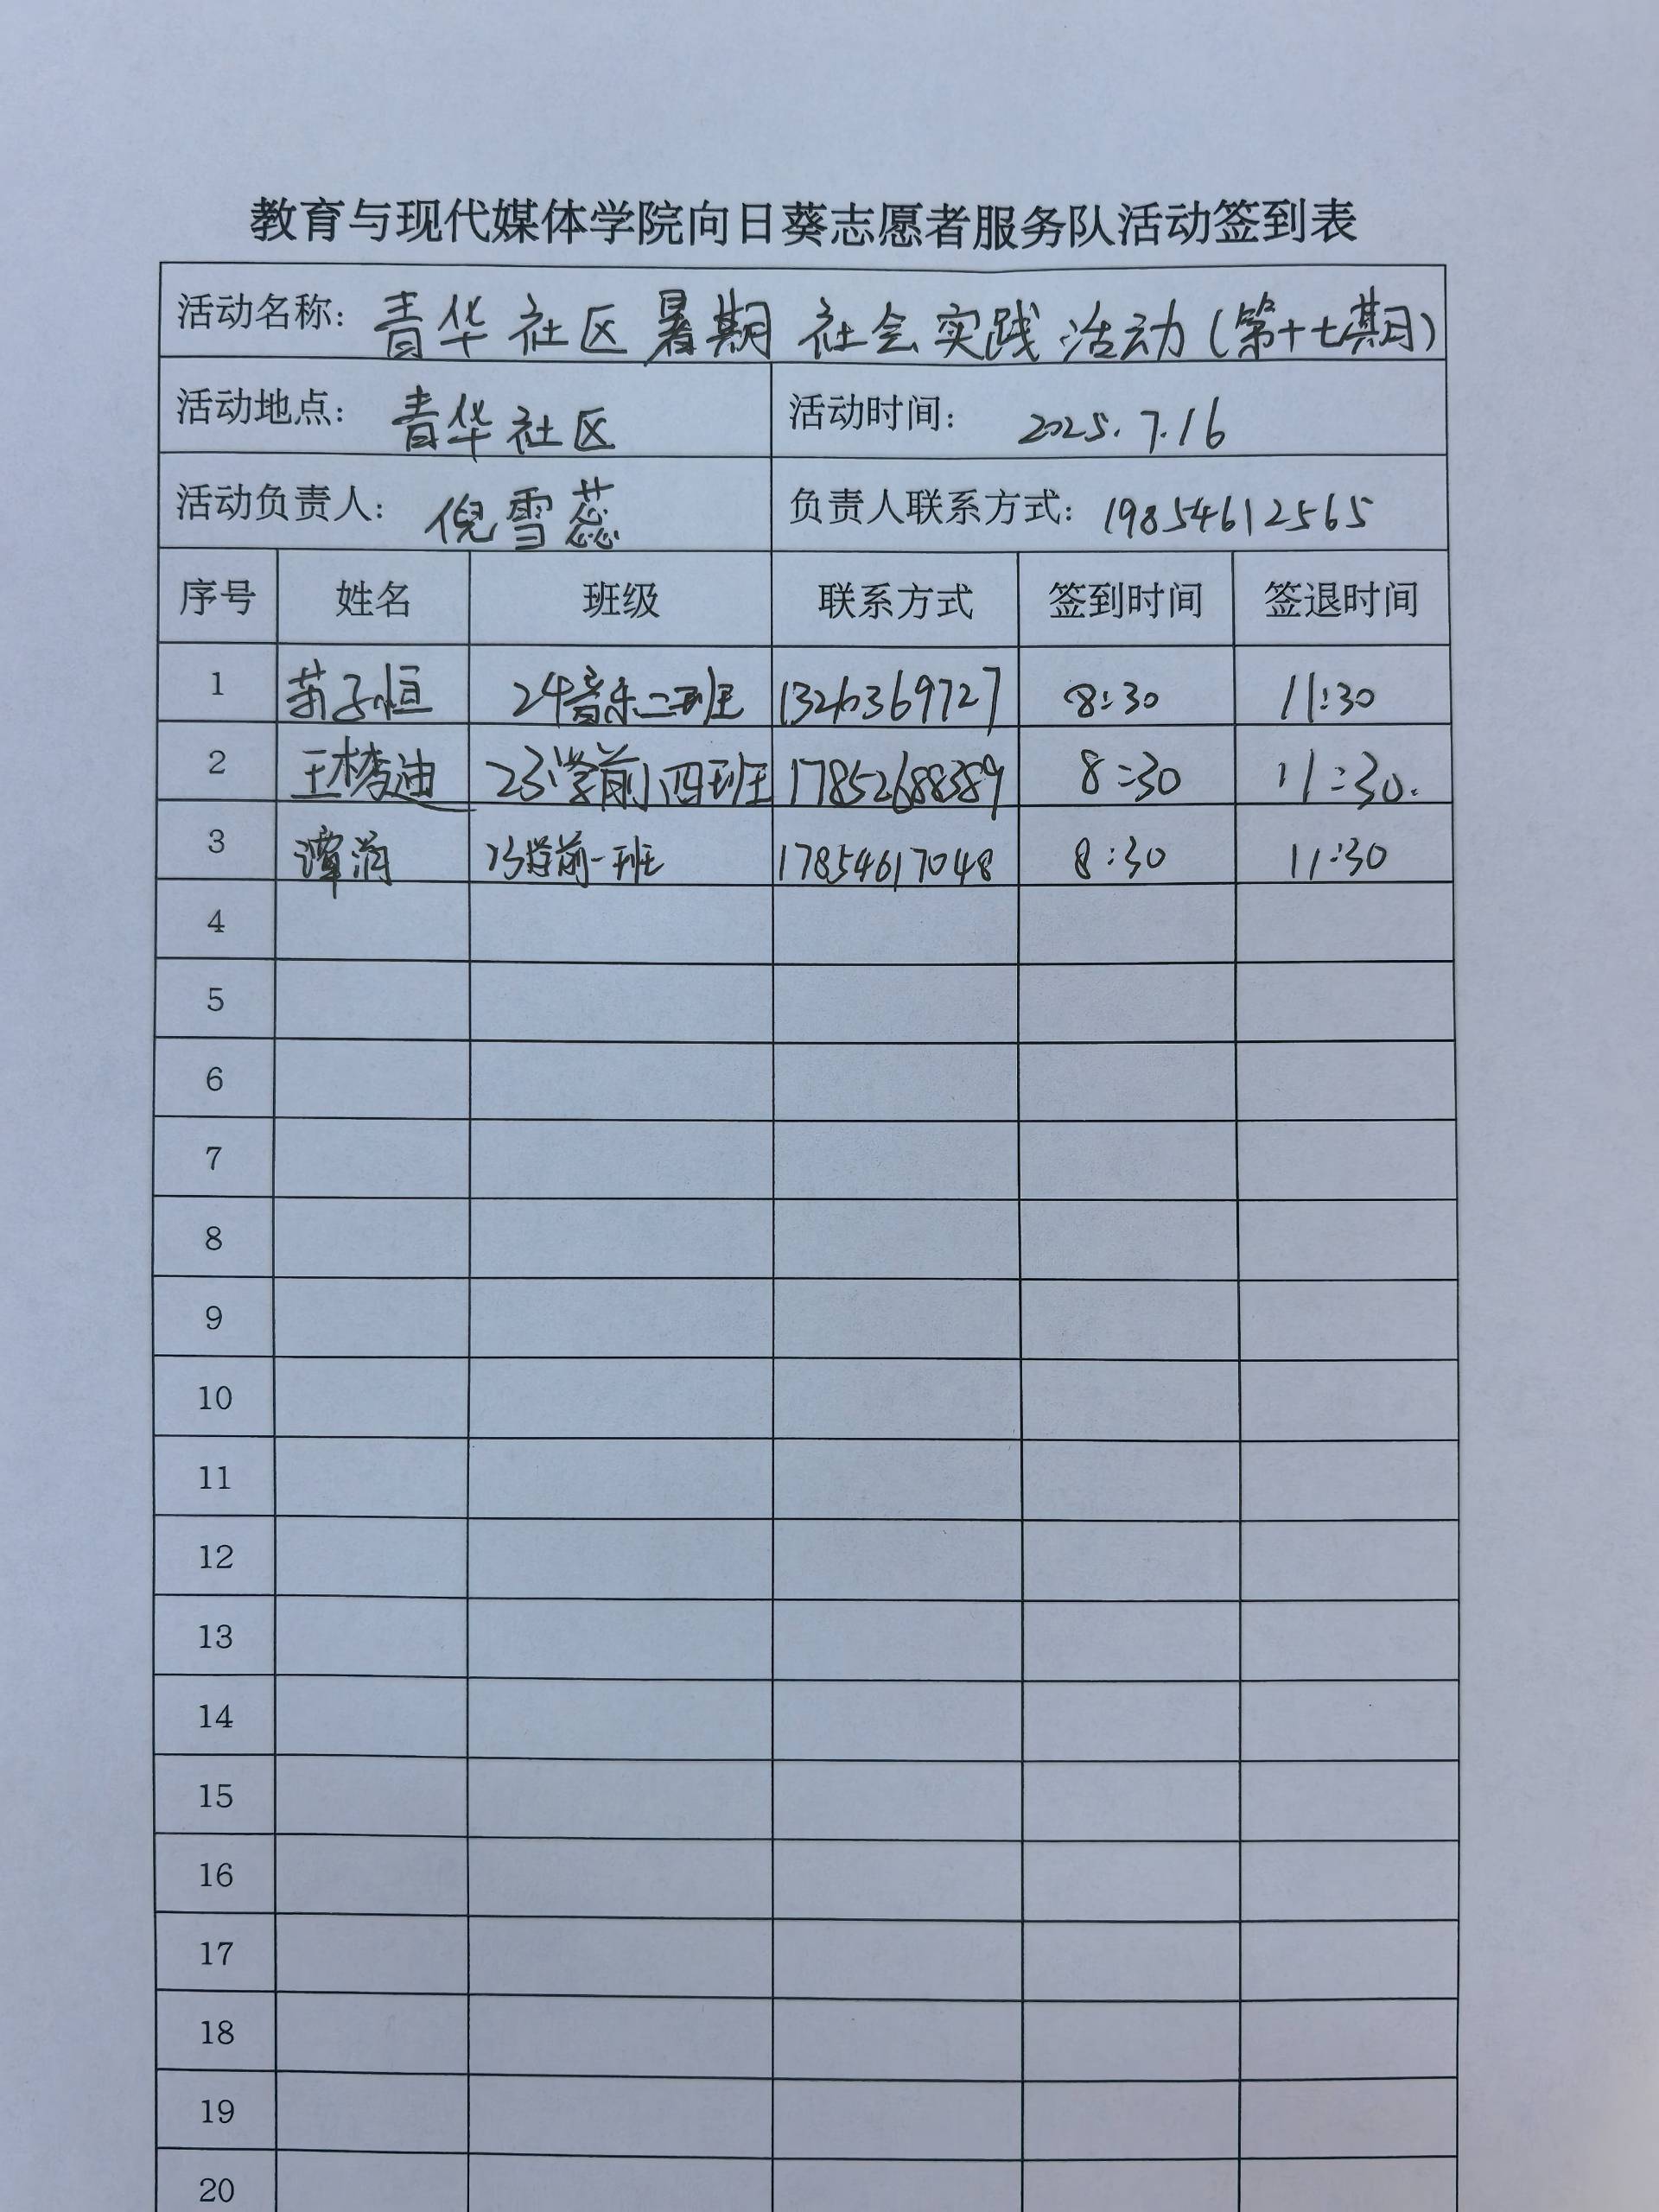 教育与现代媒体学院向日葵志愿者服务队活动签到表
活动名称: 青华社区暑期社会实践活动(第十七期)
活动地点: 青华社区 活动时间: 2025.7.16
活动负责人: 倪雪蕊 负责人联系方式: 19854612565
序号 姓名 班级 联系方式 签到时间 签退时间
1 子恒 24音乐二班 8:30 11:30
2 王 迪 23学前四班 17852688389 8:30 11:30.
3 谭润 23学前一班 17854617048 8:30 11:30
4
5
6
7
8
9
10
11
12
13
14
15
16
17
18
19
20